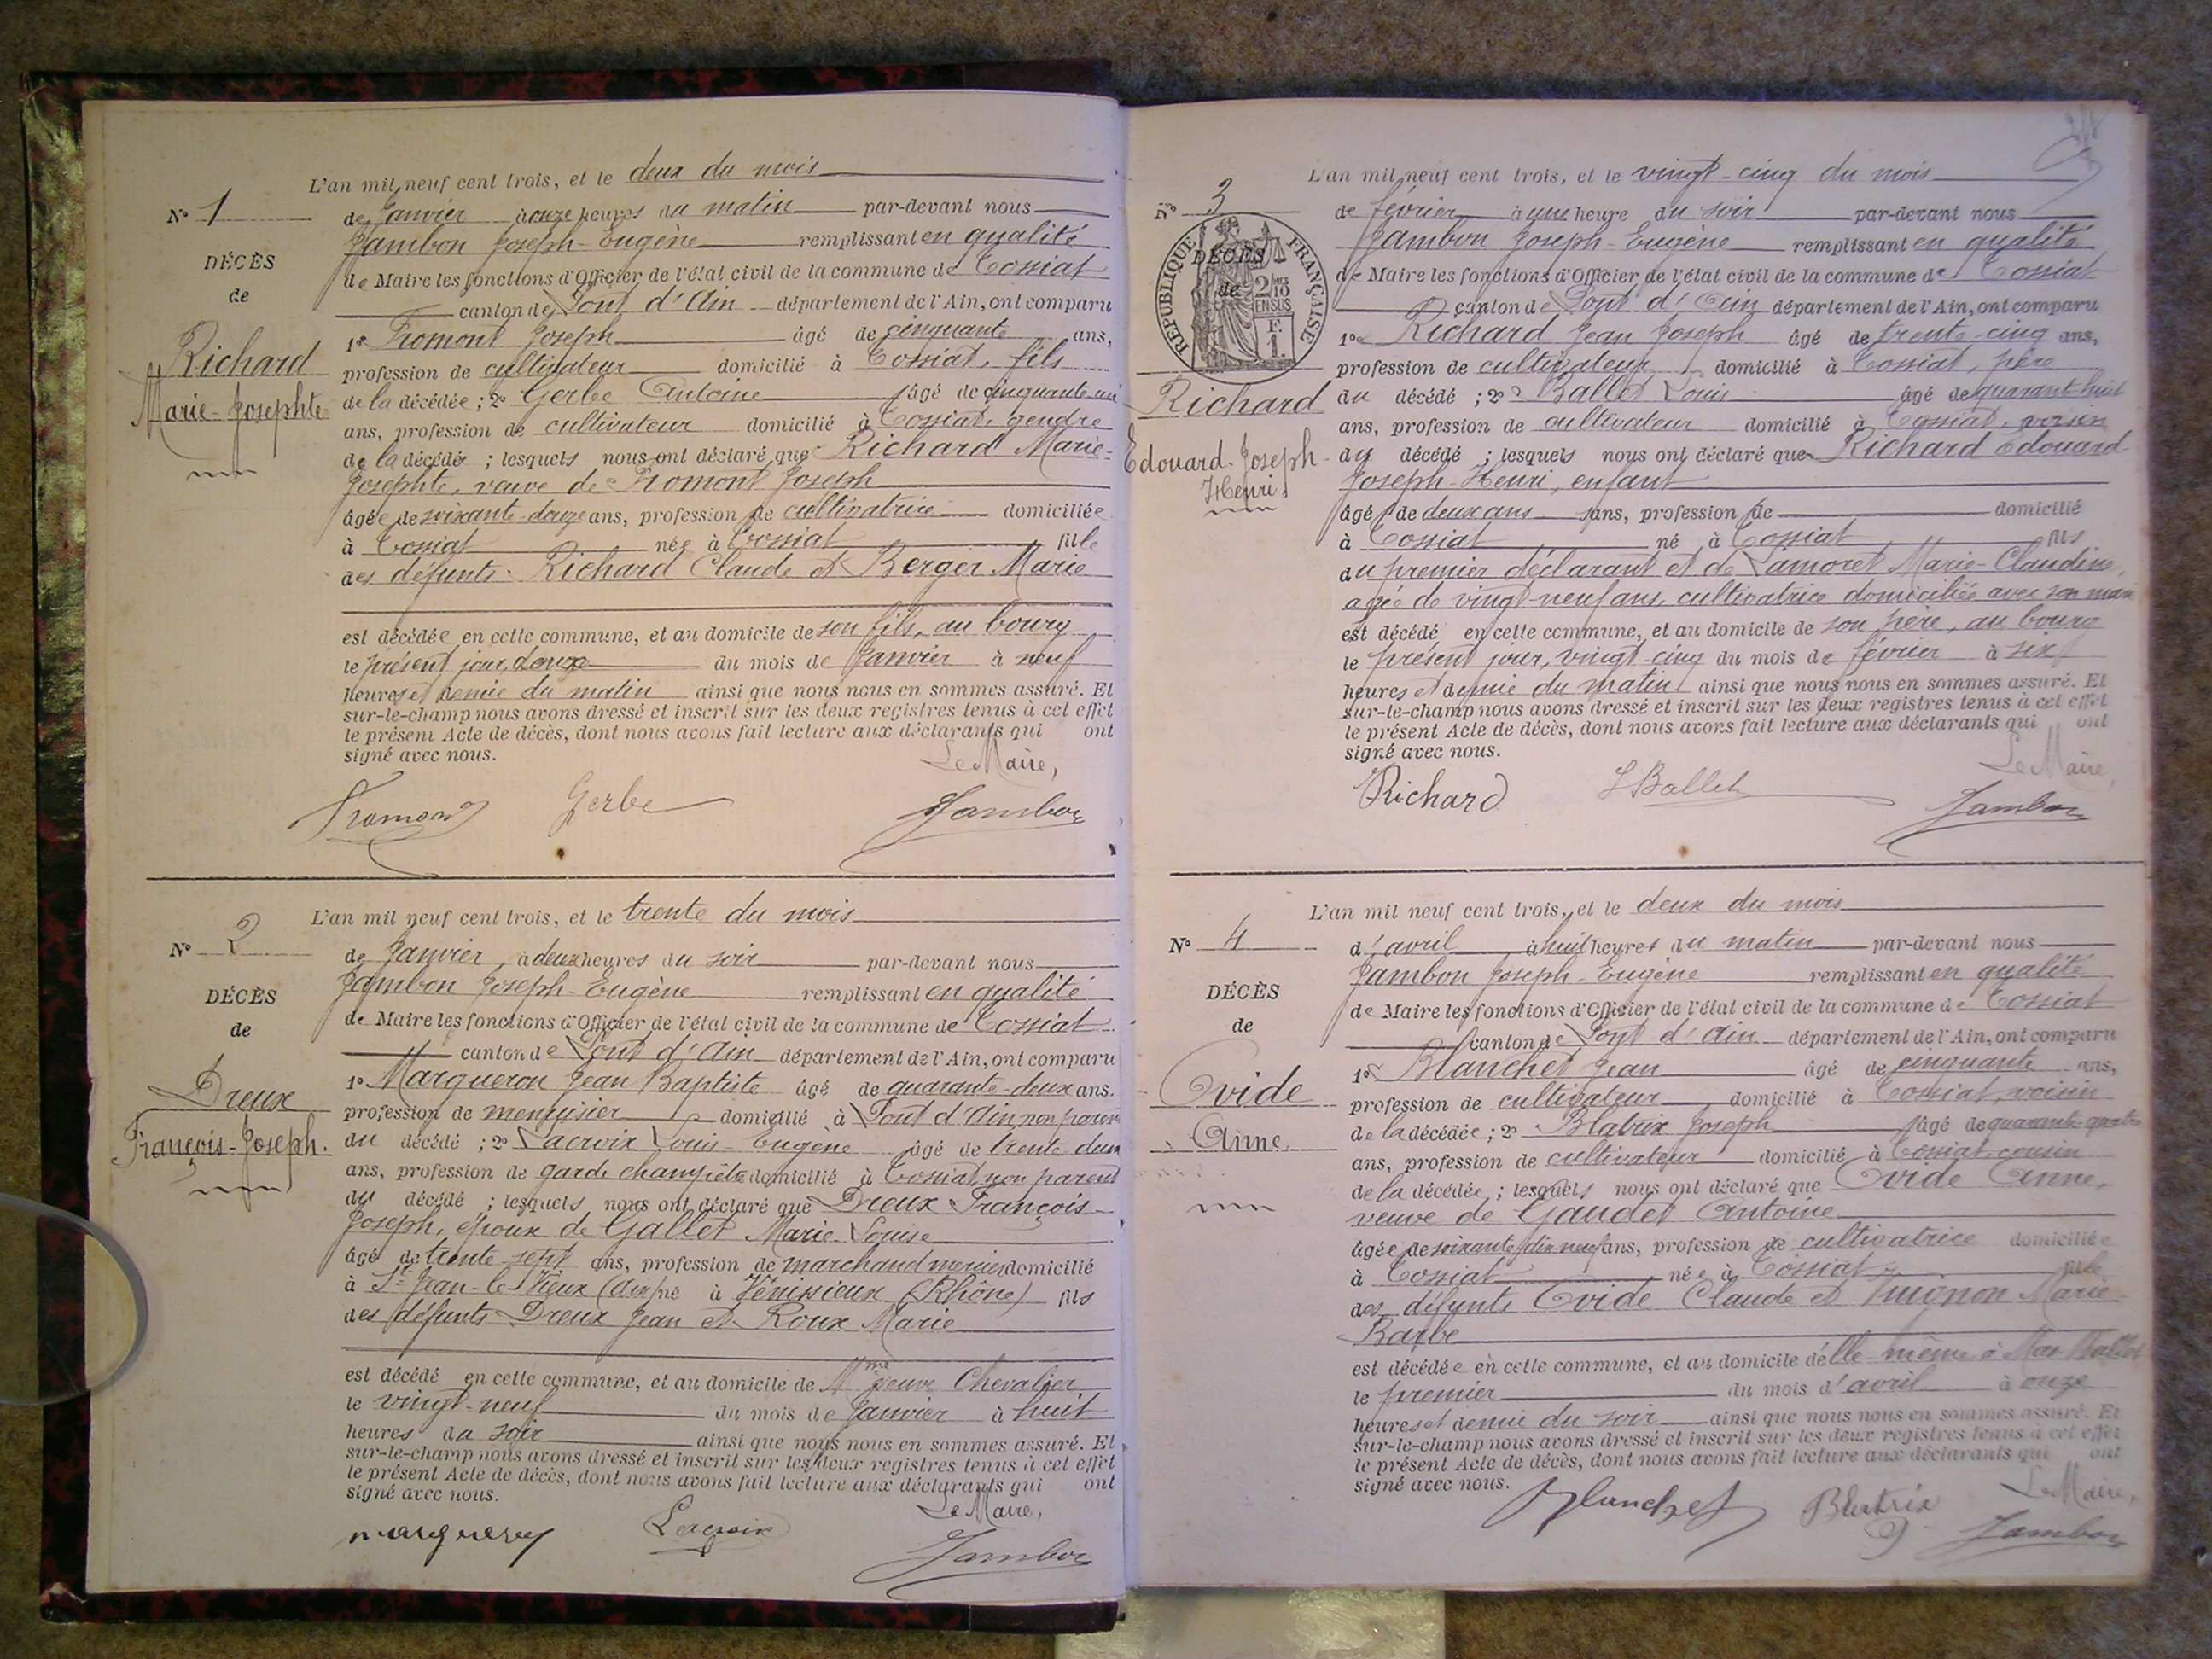 L'an mil neuf cent trois, et le deux du mois
N° 1
de Janvier à onze heures du matin par-devant nous
Jambon Joseph-Eugène remplissant en qualité
DÉCÈS
de Maire les fonctions d'Officier de l'état civil de la commune de Tossiat
de
canton de Pont d'Ain département de l'Ain, ont comparu
Richard
Marie-Josephte
1° Fromont Joseph âgé de cinquante ans,
profession de cultivateur domicilié à Tossiat, fils
de la décédée ; 2° Gerbe Antoine âgé de cinquante un
ans, profession de cultivateur domicilié à Tossiat, gendre
de la décédée ; lesquels nous ont déclaré que Richard Marie-
Josephte, veuve de Fromont Joseph
âgée de soixante-douze ans, profession de cultivatrice domiciliée
à Tossiat née à Tossiat fille
des défunts Richard Claude et Berger Marie
est décédée en cette commune, et au domicile de son fils, au bourg
le présent jour, deux du mois de Janvier à neuf
heures et demie du matin ainsi que nous nous en sommes assuré. Et
sur-le-champ nous avons dressé et inscrit sur les deux registres tenus à cet effet
le présent Acte de décès, dont nous avons fait lecture aux déclarants qui ont
signé avec nous.
Le Maire,
Fromont Gerbe Jambon
L'an mil neuf cent trois, et le trente du mois
N° 2
de Janvier, à deux heures du soir par-devant nous
Jambon Joseph-Eugène remplissant en qualité
DÉCÈS
de Maire les fonctions d'Officier de l'état civil de la commune de Tossiat
de
canton de Pont d'Ain département de l'Ain, ont comparu
Dreux
François-Joseph.
1° Margueron Jean Baptiste âgé de quarante-deux ans.
profession de menuisier domicilié à Pont d'Ain, non parent
du décédé ; 2° Lacroix Louis-Eugène âgé de trente deux
ans, profession de garde champêtre domicilié à Tossiat, non parent
du décédé ; lesquels nous ont déclaré que Dreux François-
Joseph, époux de Gallet Marie Louise
âgé de trente-sept ans, profession de marchand mercier domicilié
à St-Jean-le-Vieux (Ain) né à Vénissieux (Rhône) fils
des défunts Dreux Jean et Roux Marie
est décédé en cette commune, et au domicile de Mme veuve Chevalier
le vingt-neuf du mois de Janvier à huit
heures du soir ainsi que nous nous en sommes assuré. Et
sur-le-champ nous avons dressé et inscrit sur les deux registres tenus à cet effet
le présent Acte de décès, dont nous avons fait lecture aux déclarants qui ont
signé avec nous.
Le Maire,
Margueron Lacroix Jambon
L'an mil neuf cent trois, et le vingt-cinq du mois
N° 3
de février à une heure du soir par-devant nous
Jambon Joseph-Eugène remplissant en qualité
RÉPUBLIQUE FRANÇAISE
DÉCÈS
de
2/10 EN SUS
F. 1.
de Maire les fonctions d'Officier de l'état civil de la commune de Tossiat
canton de Pont d'Ain département de l'Ain, ont comparu
Richard
Edouard-Joseph
Henri.
1° Richard Jean Joseph âgé de trente-cinq ans,
profession de cultivateur domicilié à Tossiat, père
du décédé ; 2° Ballet Louis âgé de quarant-huit
ans, profession de cultivateur domicilié à Tossiat, voisin
du décédé ; lesquels nous ont déclaré que Richard Edouard
Joseph-Henri, enfant
âgé de deux ans sans, profession de domicilié
à Tossiat né à Tossiat fils
du premier déclarant et de Lamoret Marie-Claudine,
agée de vingt-neuf ans, cultivatrice domiciliée avec son mari
est décédé en cette commune, et au domicile de son père, au bourg
le présent jour, vingt-cinq du mois de février à six
heures et demie du matin ainsi que nous nous en sommes assuré. Et
sur-le-champ nous avons dressé et inscrit sur les deux registres tenus à cet effet
le présent Acte de décès, dont nous avons fait lecture aux déclarants qui ont
signé avec nous.
Le Maire,
Richard L Ballet Jambon
L'an mil neuf cent trois, et le deux du mois
N° 4
d'avril à huit heures du matin par-devant nous
Jambon Joseph-Eugène remplissant en qualité
DÉCÈS
de Maire les fonctions d'Officier de l'état civil de la commune de Tossiat
de
canton de Pont d'Ain département de l'Ain, ont comparu
Ovide
Anne.
1° Blanchet Jean âgé de cinquante ans,
profession de cultivateur domicilié à Tossiat, voisin
de la décédée ; 2° Blatrix Joseph âgé de quarante-quatre
ans, profession de cultivateur domicilié à Tossiat, cousin
de la décédée ; lesquels nous ont déclaré que Ovide Anne,
veuve de Gaudet Antoine
âgée de soixante-dix-neuf ans, profession de cultivatrice domiciliée
à Tossiat née à Tossiat fille
des défunts Ovide Claude et Marie
Barbe
est décédée en cette commune, et au domicile d'elle même à Mas
le premier du mois d'avril à onze
heures et demie du soir ainsi que nous nous en sommes assuré. Et
sur-le-champ nous avons dressé et inscrit sur les deux registres tenus à cet effet
le présent Acte de décès, dont nous avons fait lecture aux déclarants qui ont
signé avec nous.
Le Maire,
Blanchet Blatrix Jambon